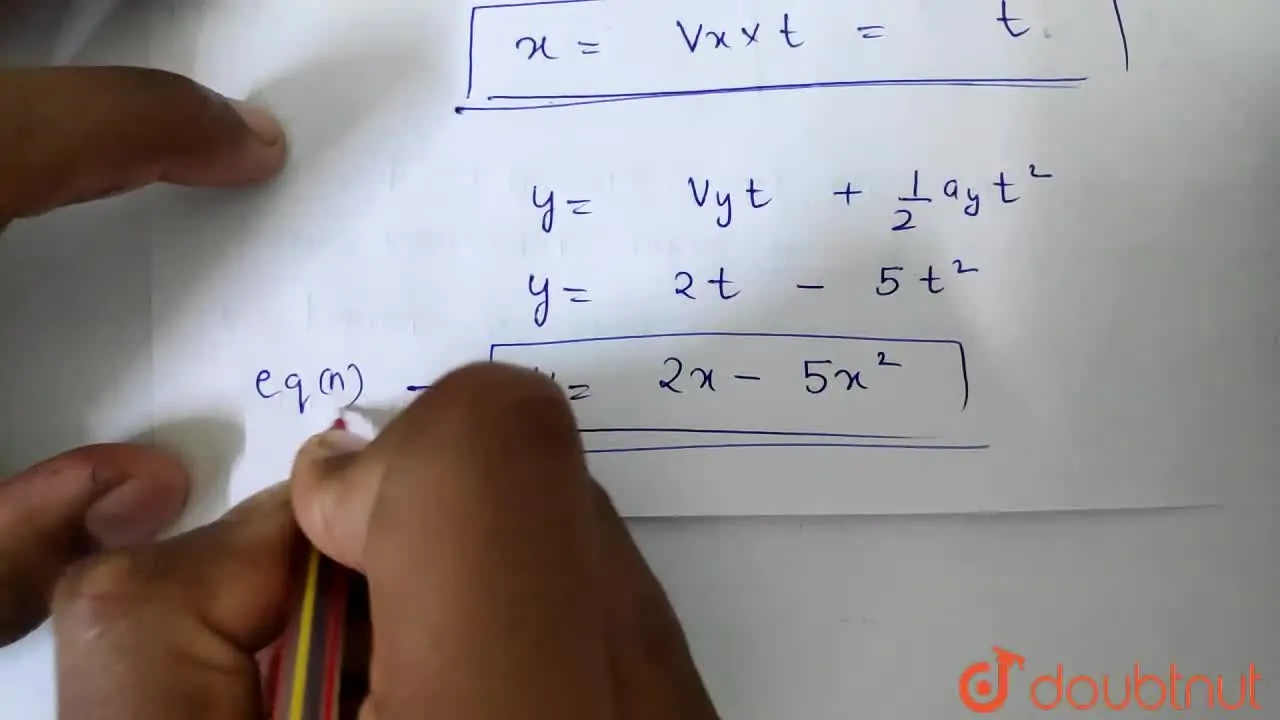 x = Vx × t = t.
y = Vyt + 1/2 ayt²
y = 2t - 5t²
eq(n) - y = 2x - 5x²
doubtnut